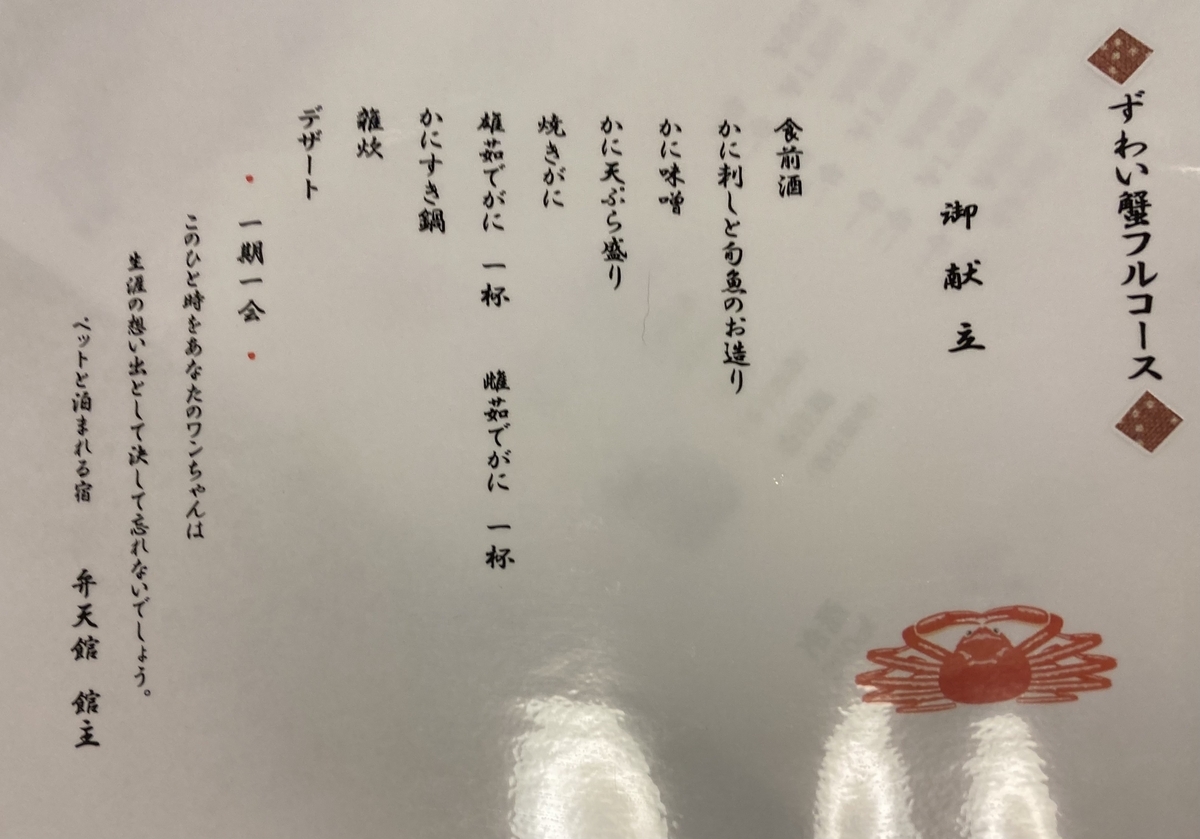 ずわい蟹フルコース
御献立
食前酒
かに刺しと旬魚のお造り
かに味噌
かに天ぷら盛り
焼きがに
雄茹でがに 一杯 雌茹でがに 一杯
かにすき鍋
雑炊
デザート
・一期一会・
このひと時をあなたのワンちゃんは
生涯の想い出として決して忘れないでしょう。
ペットと泊まれる宿 弁天館 館主